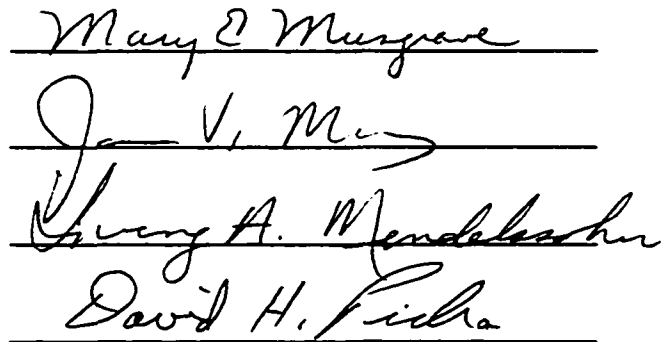 Mary E Musgrave
V.
Irving A. Mendelssohn
David H. Picha